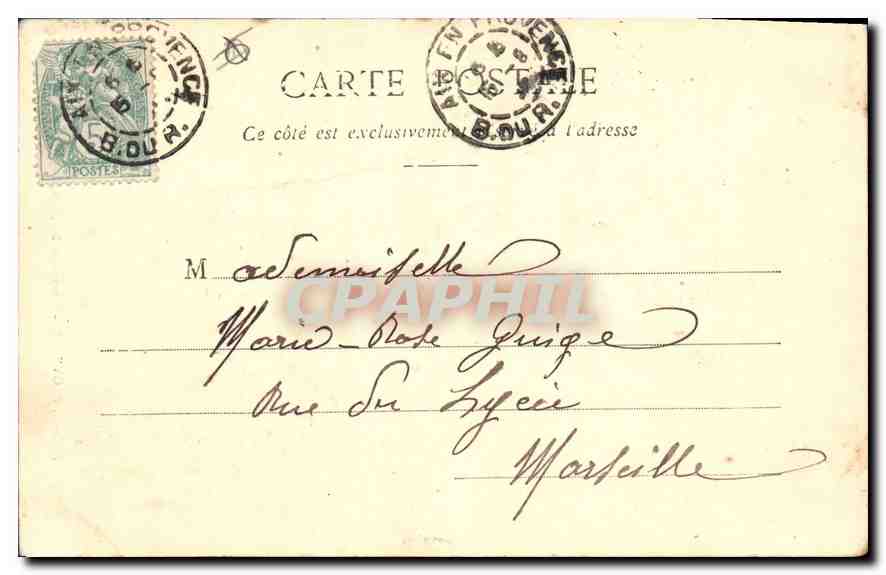 AIX EN PROVENCE
B. DU R.
5
POSTES
AIX EN PROVENCE
B. DU R.
CARTE POSTALE
Ce côté est exclusivement à l'adresse
Mademoiselle
CPAPHIL
Marie-Rose
Rue du Lycée
Marseille